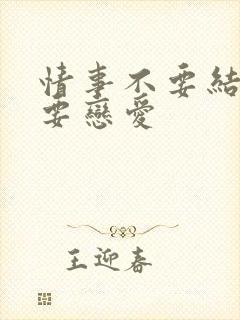 情事不要結
要戀愛
王迎春